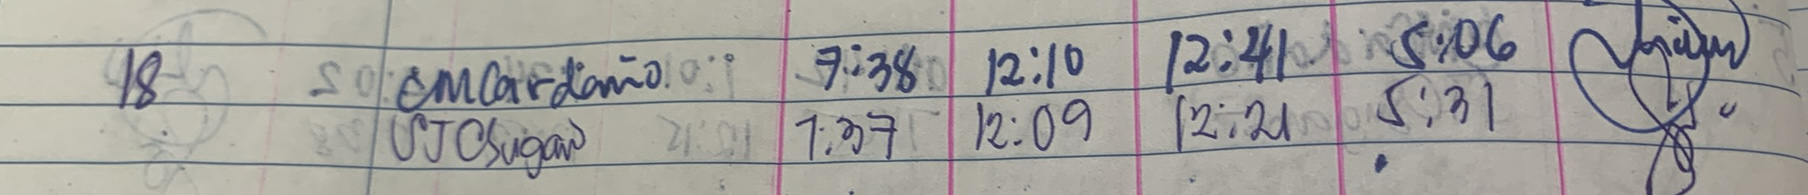 18 EMCardaño 7:38 12:10 12:41 5:06
7:37 12:09 12:21 5:31